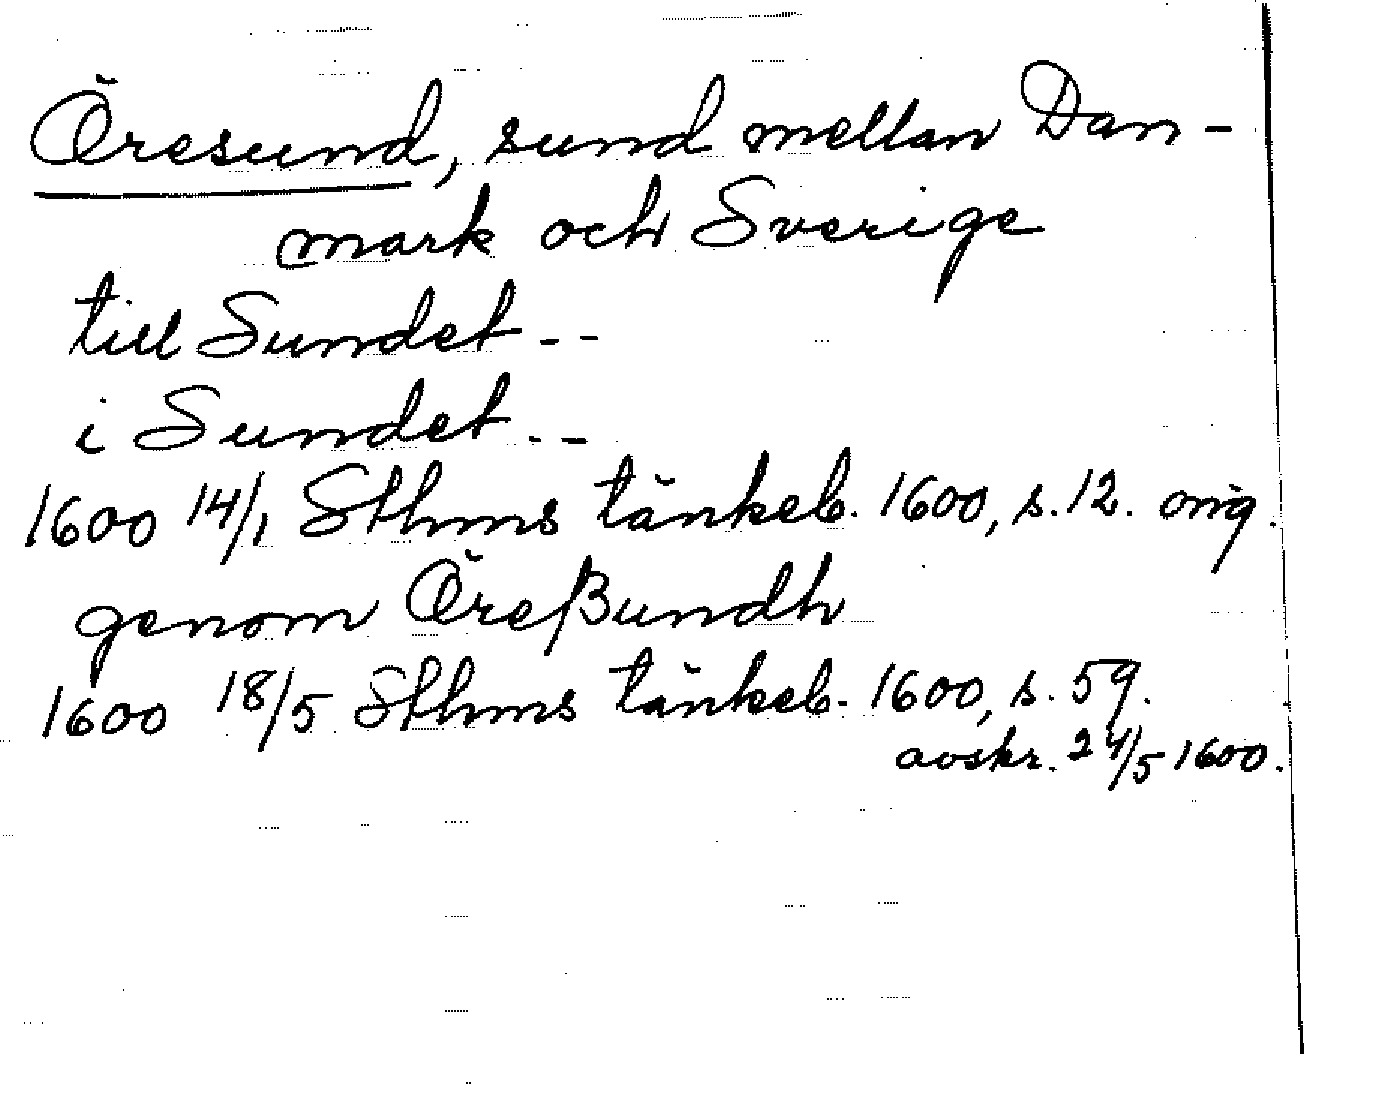 Öresund, sund mellan Dan-
mark och Sverige
till Sundet --
i Sundet --
1600 14/1 Sthms tänkeb. 1600, s. 12. orig.
genom Öreßundh
1600 18/5 Sthms tänkeb. 1600, s. 59.
avskr. 24/5 1600.